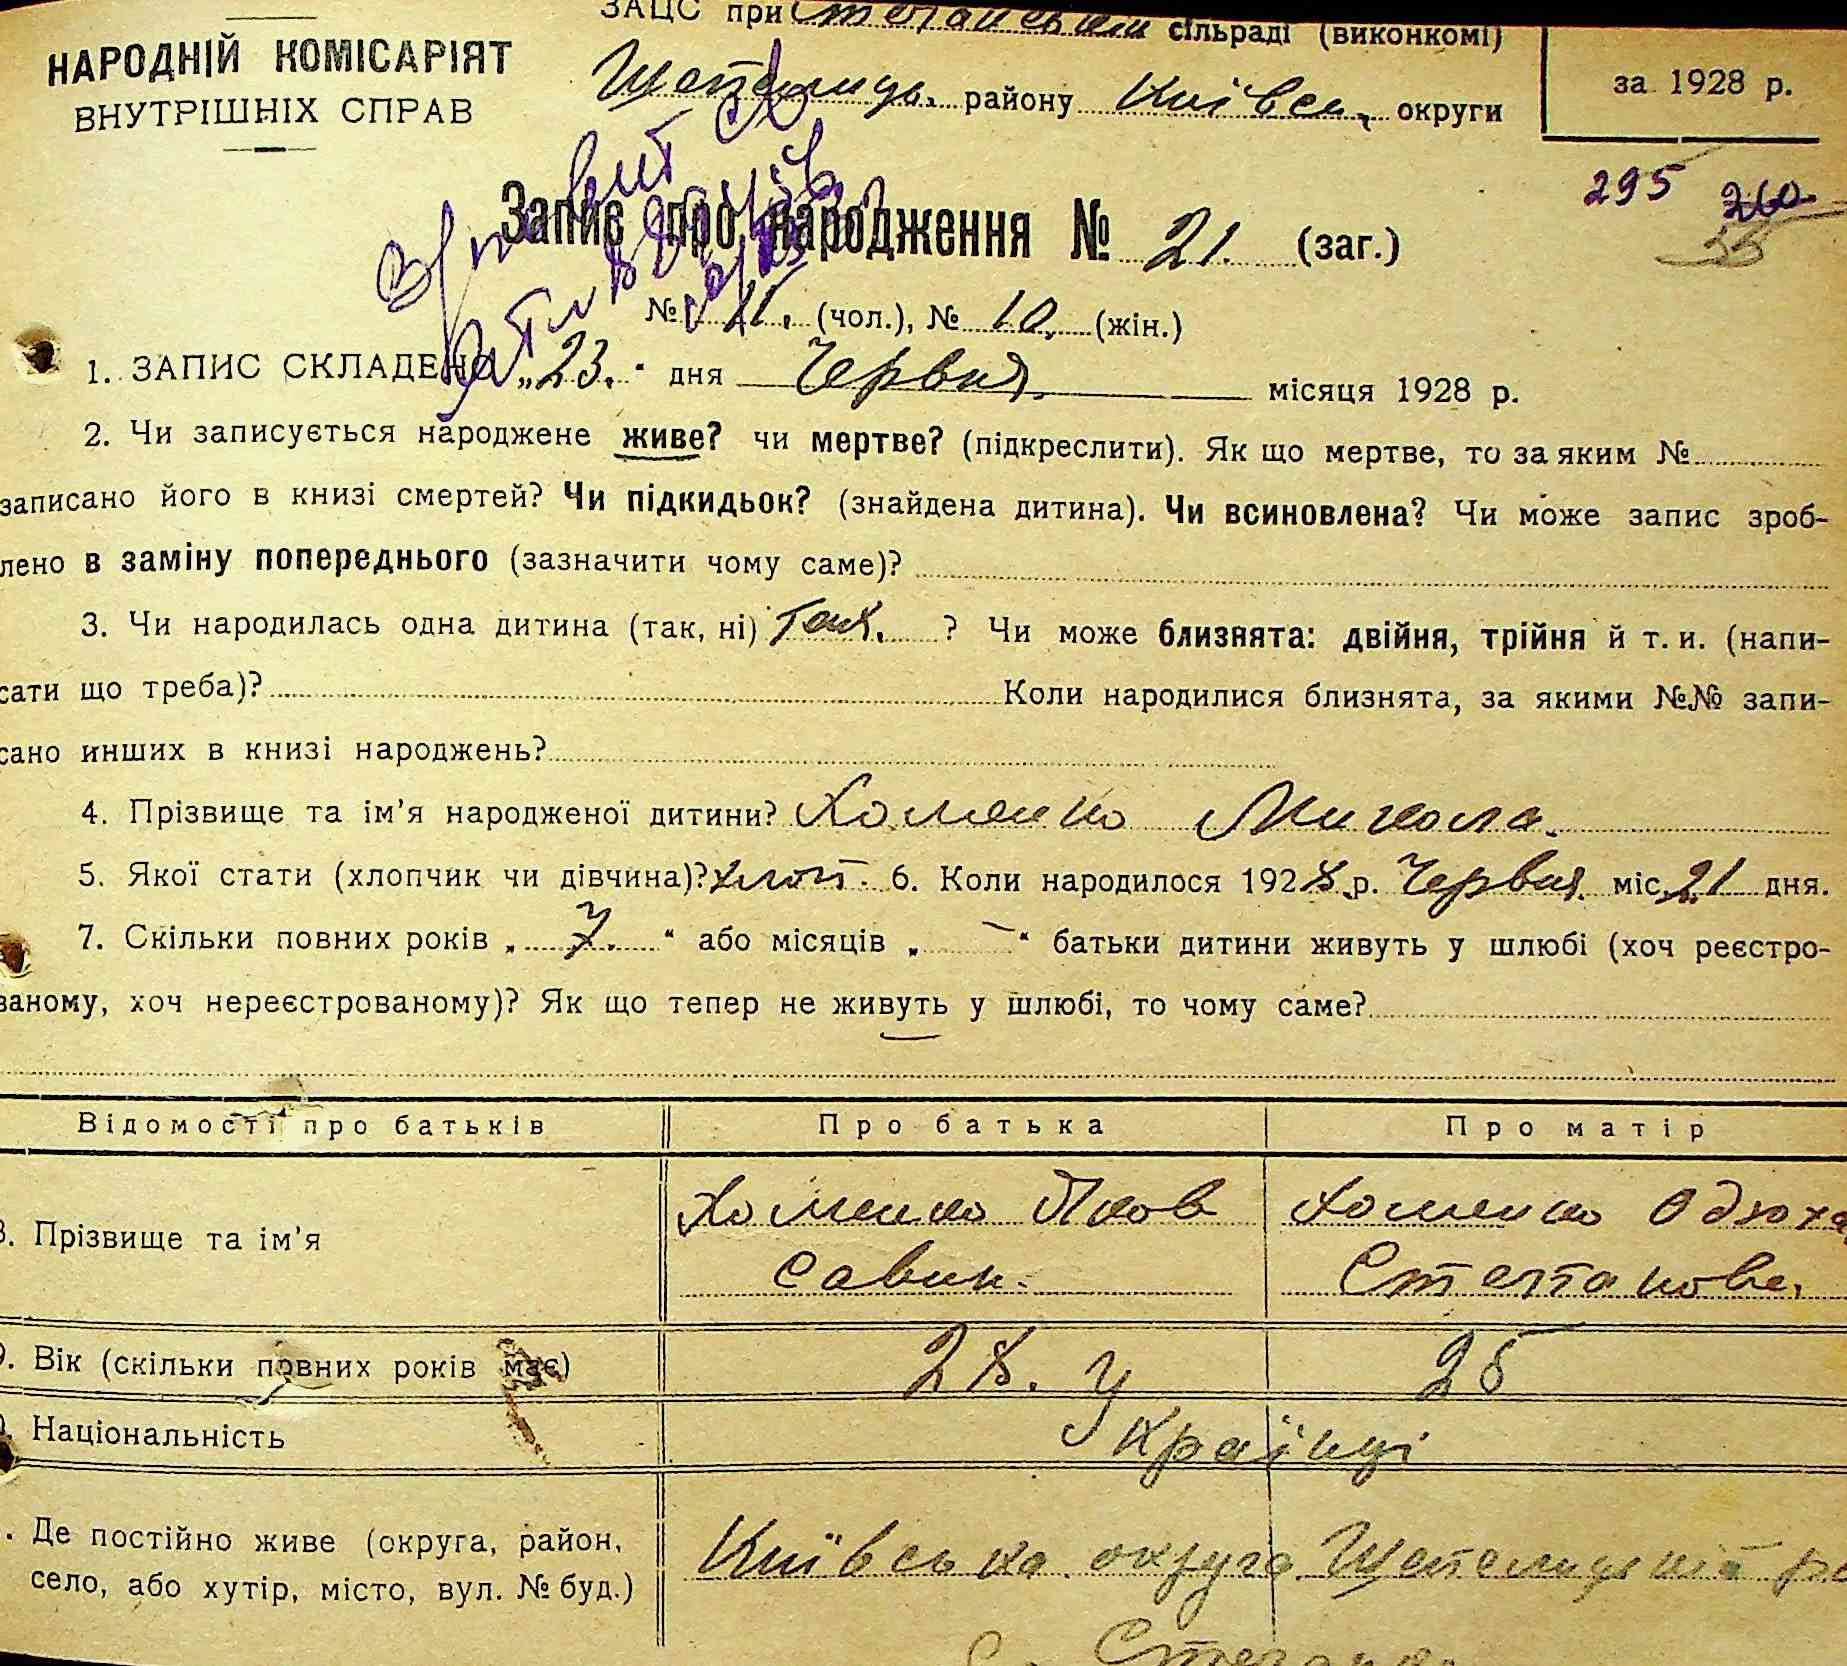 НАРОДНІЙ КОМІСАРІЯТ
ВНУТРІШНІХ СПРАВ
ЗАЦС при сільраді (виконкомі)
району Київськ. округи
за 1928 р.
295 260
Запис про народження № 21. (заг.)
№ 11. (чол.), № 10. (жін.)
1. ЗАПИС СКЛАДЕНО „23.“ дня Червня місяця 1928 р.
2. Чи записується народжене живе? чи мертве? (підкреслити). Як що мертве, то за яким №
записано його в книзі смертей? Чи підкидьок? (знайдена дитина). Чи всиновлена? Чи може запис зроб-
лено в заміну попереднього (зазначити чому саме)?
3. Чи народилась одна дитина (так, ні) Так. ? Чи може близнята: двійня, трійня й т. и. (напи-
сати що треба)? Коли народилися близнята, за якими №№ запи-
сано инших в книзі народжень?
4. Прізвище та ім’я народженої дитини? Хоменко Микола.
5. Якої стати (хлопчик чи дівчина)? хлоп. 6. Коли народилося 1928 р. Червня міс. 21 дня.
7. Скільки повних років „ 7. “ або місяців „ — “ батьки дитини живуть у шлюбі (хоч реєстро-
ваному, хоч нереєстрованому)? Як що тепер не живуть у шлюбі, то чому саме?
Відомості про батьків Про батька Про матір
8. Прізвище та ім’я Хоменко Яков Хоменко
Савин. Степанова.
9. Вік (скільки повних років має) 28. 25
Національність Українці
Де постійно живе (округа, район, Київська округа
село, або хутір, місто, вул. № буд.)